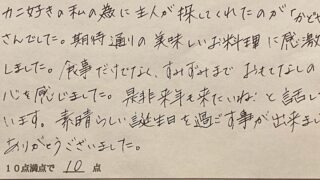 カニ好きの私の為に主人が探してくれたのが「かどや
さんでした。期待通りの美味しいお料理に感激
しました。食事だけでなく、すみずみまでおもてなしの
心を感じました。是非来年も来たいね!と話して
います。素晴らしい誕生日を過ごす事が出来まし
ありがとうございました。
10点満点で 10 点